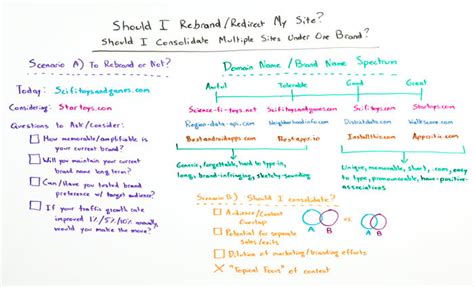 Should I Rebrand/Redirect My Site?
Should I Consolidate Multiple Sites Under One Brand?
Scenario A) To Rebrand or Not?
Today: Scifitoysandgames.com
Considering: Startoys.com
Questions to Ask/Consider:
How memorable/amplifiable is
your current brand?
Will you maintain your current
brand name long term?
Can/Have you tested brand
preference w/ target audience?
If your traffic growth rate
improved 1%/5%/10% annually,
would you make the move?
Domain Name / Brand Name Spectrum
Awful Tolerable Good Great
Science-fi-toys.net Scifitoysandgames.com Scifitoys.com Startoys.com
Region-data-api.com Neighborhoodinfo.com Districtdata.com Walkscore.com
Bestandroidapps.com Bestapps.io Installthis.com Appcritic.com
Generic, forgettable, hard to type in,
long, brand-infringing, sketchy-sounding
Unique, memorable, short, .com, easy
to type, pronounceable, have-positive-
associations
Scenario B) Should I consolidate?
Audience/Content
Overlap
A B vs A B
Potential for separate
sales/exits
Dilution of marketing/branding efforts
X "Topical Focus" of content